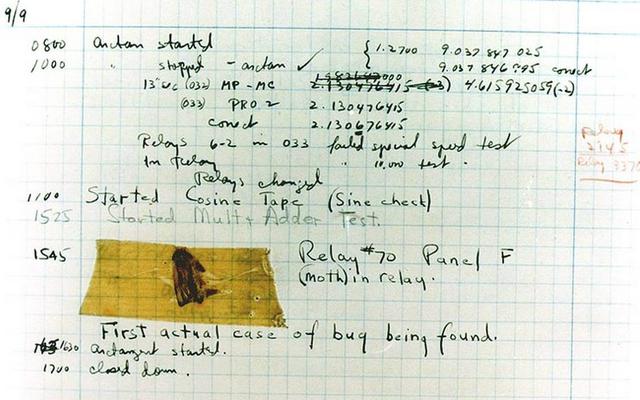 9/9
0800 antan started { 1.2700 9.037 847 025
1000 " stopped - antan ✓ 9.037 846 995 conect
13" UC (032) MP - MC 2.130476415 (-3) 4.615925059(-2)
(033) PRO 2 2.130476415
conect 2.130676415
Relays 6-2 in 033 failed special speed test
In Relay " 10,000 test.
Relay
2145
Relay 3370
Relays changed
1100 Started Cosine Tape (Sine check)
1525 Started Mult+ Adder Test.
1545 Relay #70 Panel F
(moth) in relay.
First actual case of bug being found.
1630 antangent started.
1700 closed down.